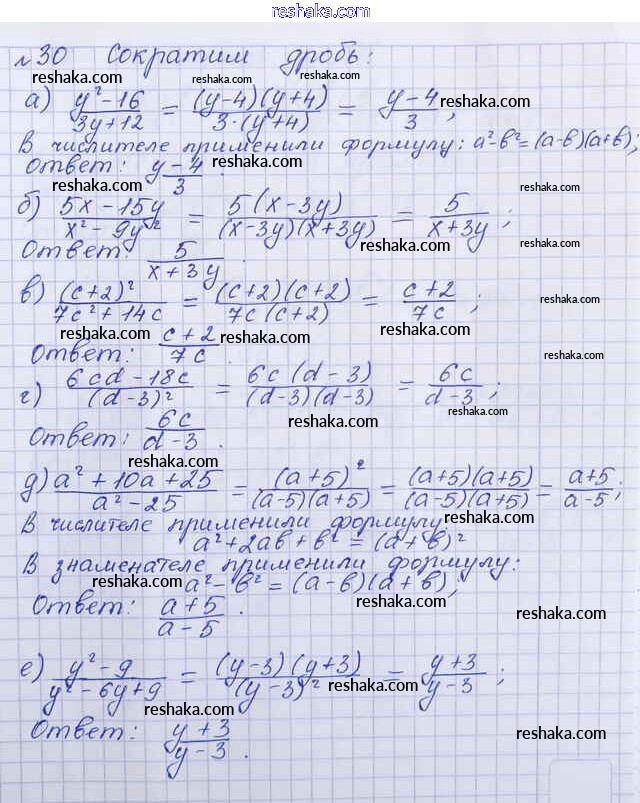 reshaka.com
reshaka.com
№30 Сократим дробь:
reshaka.com reshaka.com reshaka.com
а) (y²-16)/(3y+12) = ((y-4)(y+4))/(3·(y+4)) = (y-4)/3;
reshaka.com
В числителе применили формулу: a²-b²=(a-b)(a+b);
Ответ: (y-4)/3.
reshaka.com reshaka.com
reshaka.com
б) (5x-15y)/(x²-9y²) = (5(x-3y))/((x-3y)(x+3y)) = 5/(x+3y);
reshaka.com reshaka.com reshaka.com
Ответ: 5/(x+3y).
reshaka.com
в) (c+2)²/(7c²+14c) = ((c+2)(c+2))/(7c(c+2)) = (c+2)/(7c);
reshaka.com
reshaka.com reshaka.com
Ответ: (c+2)/(7c).
reshaka.com
г) (6cd-18c)/(d-3)² = (6c(d-3))/((d-3)(d-3)) = 6c/(d-3);
reshaka.com reshaka.com
Ответ: 6c/(d-3).
reshaka.com
д) (a²+10a+25)/(a²-25) = (a+5)²/((a-5)(a+5)) = ((a+5)(a+5))/((a-5)(a+5)) = (a+5)/(a-5);
В числителе применили формулу
reshaka.com reshaka.com
a²+2ab+b²=(a+b)²
В знаменателе применили формулу:
reshaka.com
a²-b²=(a-b)(a+b);
reshaka.com reshaka.com
Ответ: (a+5)/(a-5).
е) (y²-9)/(y²-6y+9) = ((y-3)(y+3))/(y-3)² = (y+3)/(y-3);
reshaka.com reshaka.com
reshaka.com
Ответ: (y+3)/(y-3).
reshaka.com